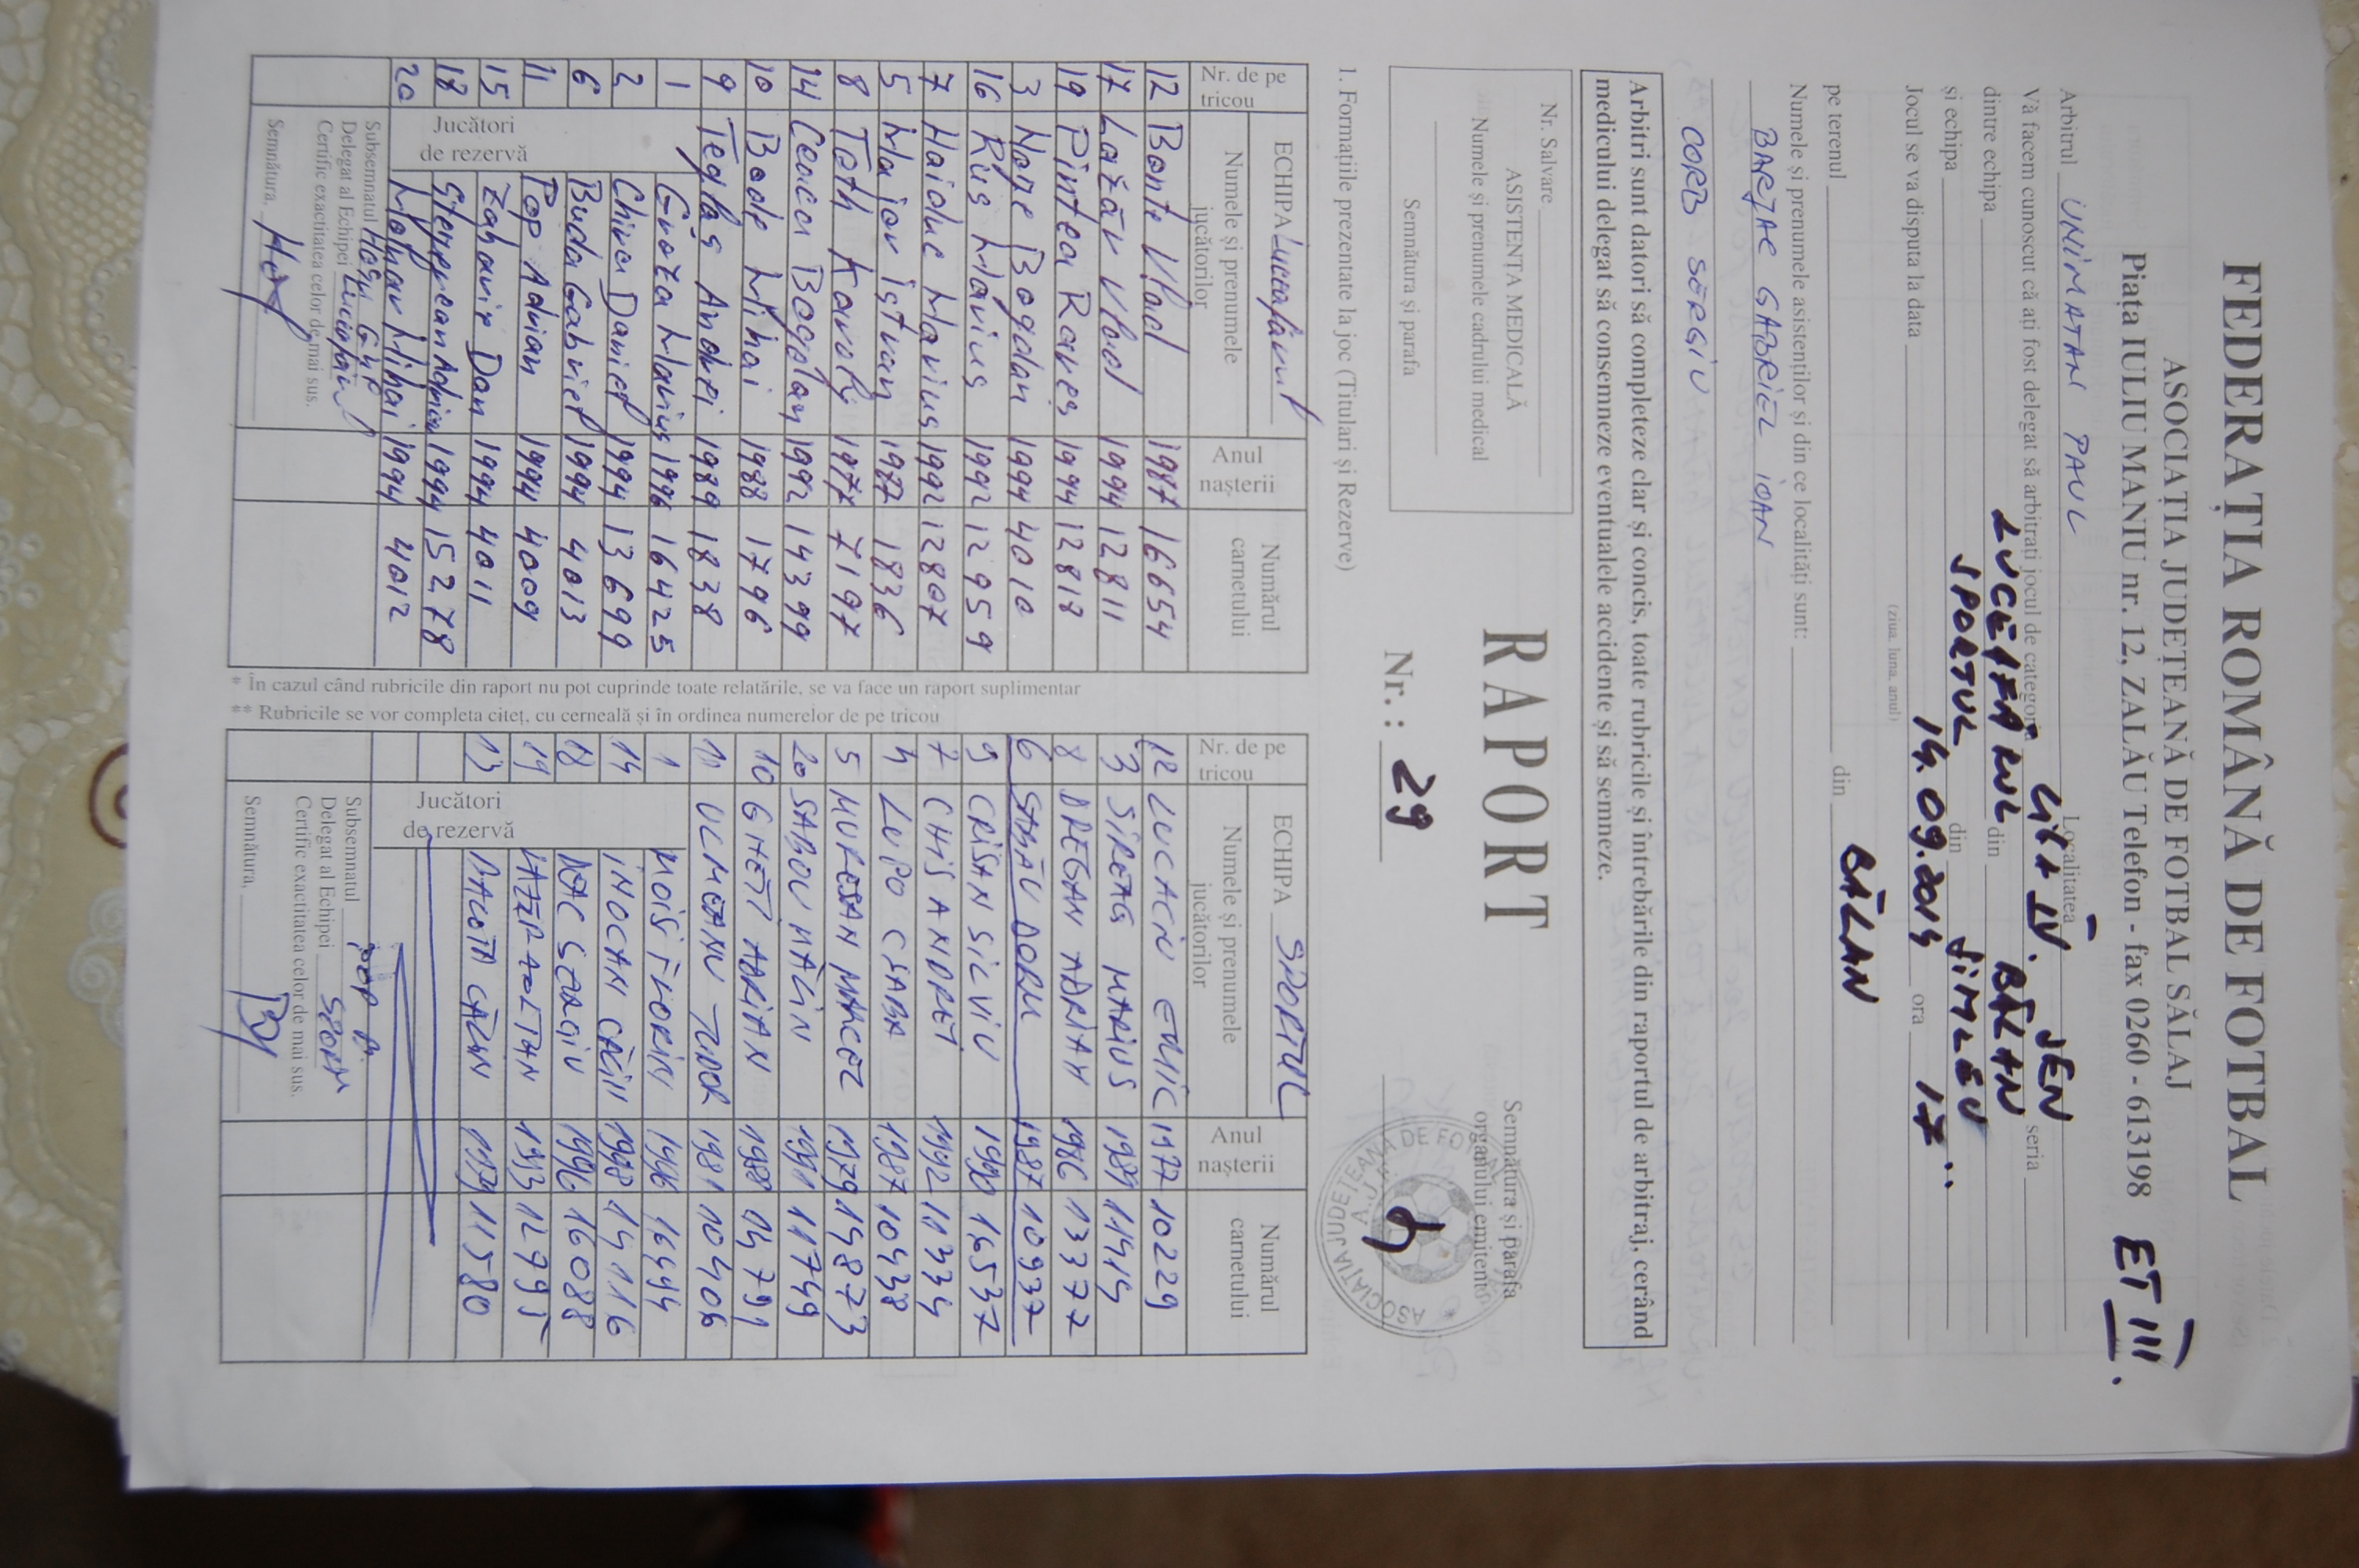 FEDERAȚIA ROMÂNĂ DE FOTBAL
ASOCIAȚIA JUDEȚEANĂ DE FOTBAL SĂLAJ
Piața IULIU MANIU nr. 12, ZALĂU Telefon - fax 0260 - 613198 ET III.
Arbitrul UNIMATAN PAUL Localitatea
Vă facem cunoscut că ați fost delegat să arbitrați jocul de categoria LIGA IV. SEN seria
dintre echipa LUCEAFARUL din BĂLAN
și echipa SPORTUL din ȘIMLEU
Jocul se va disputa la data 14.09.2014 ora 17
(ziua, luna, anul)
pe terenul din BĂLAN
Numele și prenumele asistenților și din ce localități sunt:
BARJAC GABRIEL IOAN
CORB SERGIU
Arbitri sunt datori să completeze clar și concis, toate rubricile și întrebările din raportul de arbitraj, cerând
medicului delegat să consemneze eventualele accidente și să semneze.
Nr. Salvare
ASISTENȚA MEDICALĂ
Numele și prenumele cadrului medical
Semnătura și parafa
RAPORT
Nr.: 29
Semnătura și parafa
organului emitent
ASOCIAȚIA JUDEȚEANĂ DE FOTBAL
A.J.F.
1. Formațiile prezentate la joc (Titulari și Rezerve)
Nr. de pe tricou
ECHIPA Luceafărul
Numele și prenumele jucătorilor
Anul nașterii
Numărul carnetului
12 Bonte Vlad 1987 16654
17 Lazăr Vlad 1994 12811
19 Pintea Rareș 1994 12818
3 Bogdan 1994 4010
16 Rus Marius 1992 12959
7 Haiduc Marius 1992 12807
5 Major Istvan 1987 1836
8 Toth Karoly 1977 7197
14 Ceacu Bogdan 1992 14399
10 Bode Mihai 1988 1796
9 Teglaș Andrei 1989 1838
1 Marius 1996 16425
2 Chira Daniel 1994 13699
6 Buda Gabriel 1994 4013
11 Pop Adrian 1994 4009
15 Zaharie Dan 1994 4011
18 Adrian 1994 15278
20 Molnar Mihai 1994 4012
Jucători
de rezervă
Subsemnatul
Delegat al Echipei Luceafărul
Certific exactitatea celor de mai sus.
Semnătura,
* În cazul când rubricile din raport nu pot cuprinde toate relatările, se va face un raport suplimentar
** Rubricile se vor completa citeț, cu cerneală și în ordinea numerelor de pe tricou
Nr. de pe tricou
ECHIPA SPORTUL
Numele și prenumele jucătorilor
Anul nașterii
Numărul carnetului
12 LUCACIU EMIC 1977 10229
3 SIREAG MARIUS 1989 11414
8 DREGAN ADRIAN 1986 13377
6 DORU 1987 10937
9 CRIȘAN SILVIU 1990 16537
7 CHIȘ ANDREI 1992 11334
4 LUPO CSABA 1987 10438
5 MUREȘAN MARCEL 1979 148773
20 SABOU MĂLIN 1991 11749
10 GHEȚI ADRIAN 1988 04791
11 ULMEANU TUDOR 1981 10406
1 MOIȘ FLORIN 1996 16444
14 INOCAN CĂLIN 1988 14116
18 SERGIU 1996 16088
19 ZOLTAN 1993 12795
13 CĂLIN 1979 11580
Jucători
de rezervă
Subsemnatul POP
Delegat al Echipei SPORTUL
Certific exactitatea celor de mai sus.
Semnătura,